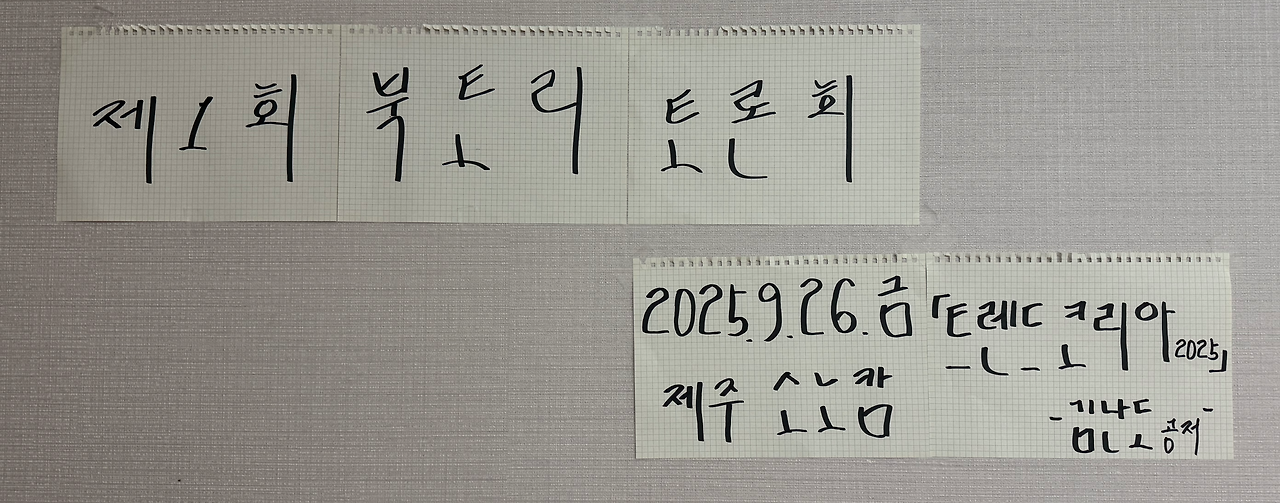 제1회 북토리 토론회
2025.9.26.금
제주 소노캄
「트렌드 코리아 2025」
- 김난도 공저 -